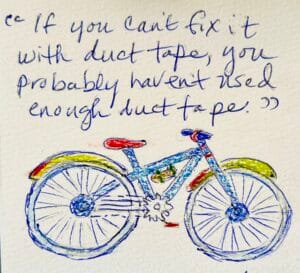 “ If you can't fix it
with duct tape, you
probably haven't used
enough duct tape. ”